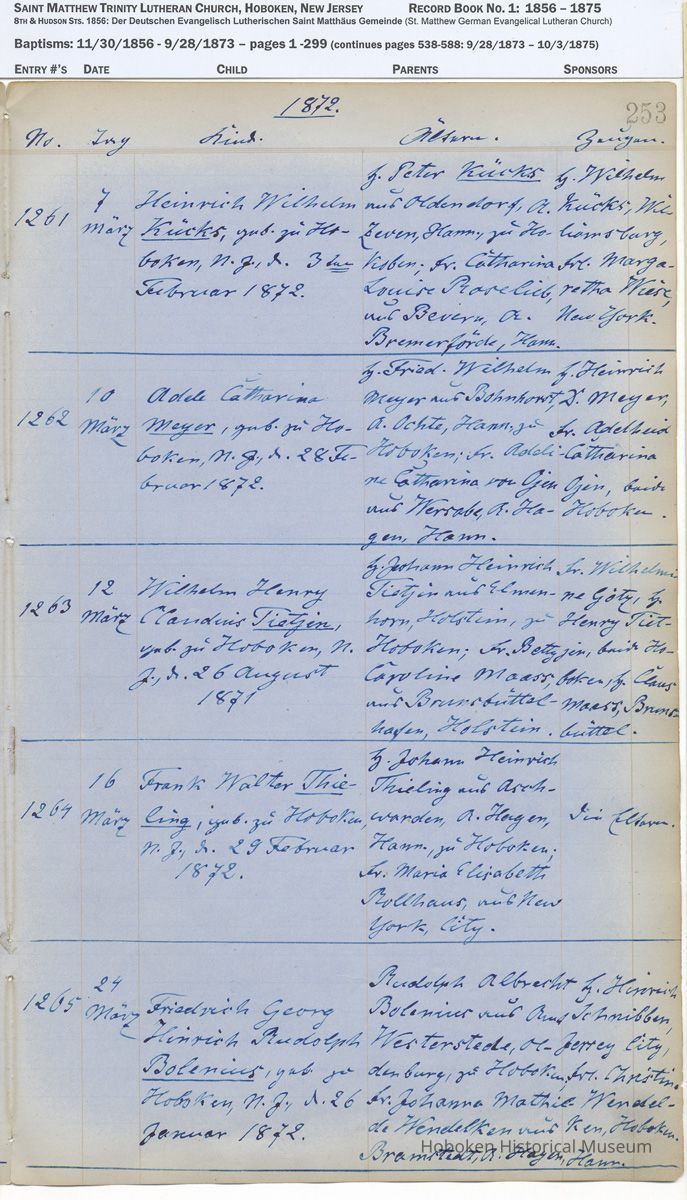 SAINT MATTHEW TRINITY LUTHERAN CHURCH, HOBOKEN, NEW JERSEY RECORD BOOK NO. 1: 1856 – 1875
8TH & HUDSON STS. 1856: Der Deutschen Evangelisch Lutherischen Saint Matthäus Gemeinde (St. Matthew German Evangelical Lutheran Church)
Baptisms: 11/30/1856 - 9/28/1873 – pages 1 -299 (continues pages 538-588: 9/28/1873 – 10/3/1875)
ENTRY #'S DATE CHILD PARENTS SPONSORS
1872. 253
No. Tag Kind. Ältern. Zeugen.
1261
7
März
Heinrich Wilhelm
Kücks, geb. zu Ho-
boken, N. J., d. 3ten
Februar 1872.
H. Peter Kücks
aus Oldendorf, A.
Zeven, Hann., zu Ho-
boken; Fr. Catharina
Louise Roselieb,
aus Bevern, A.
Bremerförde, Hann.
H. Wilhelm
Kücks, Wil-
liamsburg,
Frl. Marga-
retha Wiese,
New York.
1262
10
März
Adele Catharina
Meyer, geb. zu Ho-
boken, N. J., d. 28 Fe-
bruar 1872.
H. Fried. Wilhelm
Meyer aus Bohnhorst,
A. Uchte, Hann., zu
Hoboken; Fr. Adeli-
ne Catharina von Ojen
aus Wersabe, A. Ha-
gen, Hann.
H. Heinrich
D. Meyer,
Fr. Adelheid
Catharina
Ojen, beide
Hoboken.
1263
12
März
Wilhelm Henry
Claudius Tietjen,
geb. zu Hoboken, N.
J., d. 26 August
1871
H. Johann Heinrich
Tietjen aus Elmen-
horn, Holstein, zu
Hoboken; Fr. Betty
Caroline Maass,
aus Brunsbüttel-
hafen, Holstein.
Fr. Wilhelmi-
ne Götz, H.
Henry Tiet-
jen, beide Ho-
boken, H. Claus
Maass, Bruns-
büttel.
1264
16
März
Frank Walter Thie-
ling, geb. zu Hoboken,
N. J., d. 29 Februar
1872.
H. Johann Heinrich
Thieling aus Asch-
warden, A. Hagen,
Hann., zu Hoboken;
Fr. Maria Elisabeth
Rollhaus, aus New
York, City.
Die Eltern.
1265
24
März
Friedrich Georg
Hinrich Rudolph
Bolenius, geb. zu
Hoboken, N. J., d. 26
Januar 1872.
Rudolph Albrecht
Bolenius aus Amt
Westerstede, Ol-
denburg, zu Hoboken,
Fr. Johanna Mathil-
de Wendelken aus
Bramstedt, A. Hagen, Hann.
H. Hinrich
Schnibben,
Jersey City,
Frl. Christine
Wendel-
ken, Hoboken.
Hoboken Historical Museum